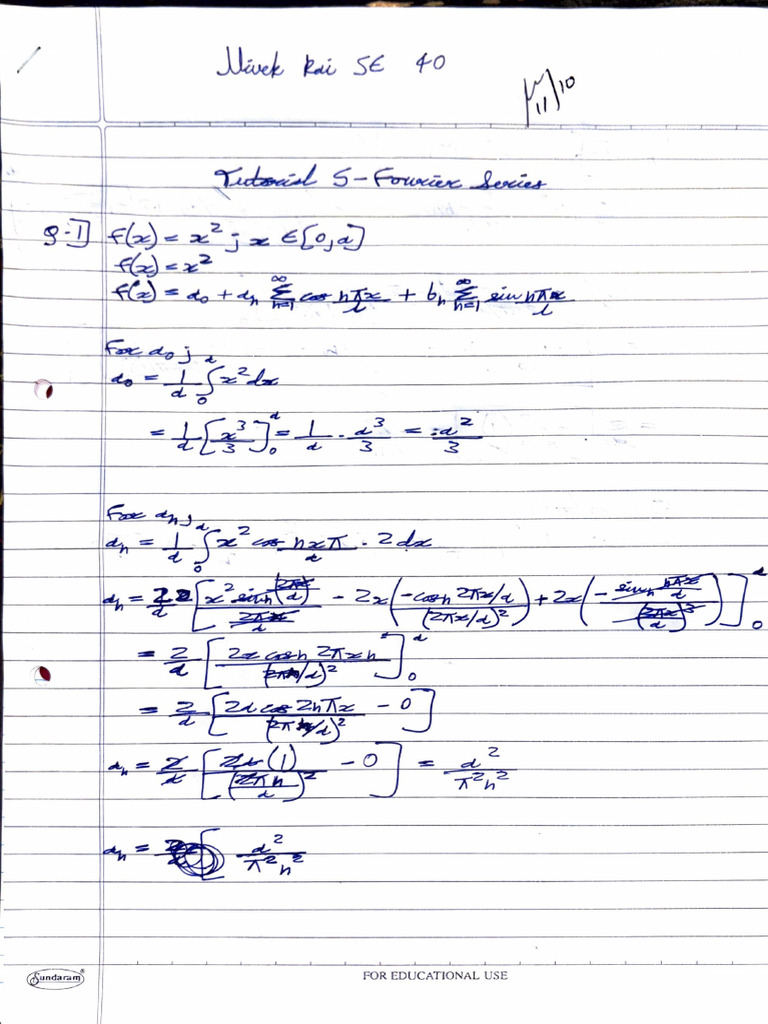 Vivek Rai SE 40
11/10
Tutorial 5 - Fourier Series
Q-1] f(x) = x² ; x ∈ [0, a]
f(x) = x²
f(x) = a₀ + aₙ ∑ₙ₌₁^∞ cos nπx/l + bₙ ∑ₙ₌₁^∞ sin nπx/l
For a₀ ;
a₀ = 1/a ∫₀^a x² dx
= 1/a [x³/3]₀^a = 1/a · a³/3 = a²/3
For aₙ ;
aₙ = 1/a ∫₀^a x² cos nxπ/a · 2 dx
aₙ = 2/a [ x² sin n(2πx/a) / (2πx/a) - 2x( -cos n 2πx/a / (2πx/a)² ) + 2x( -sin nπx/a / (2πx/a)³ ) ]₀^a
= 2/a [ 2x cos n 2πxn / (2πn/a)² ]₀^a
= 2/a [ 2a cos 2nπx / (2πn/a)² - 0 ]
aₙ = 2/a [ 2a(1) / (2πn/a)² - 0 ] = a²/π²n²
aₙ = a²/π²n²
Sundaram®
FOR EDUCATIONAL USE